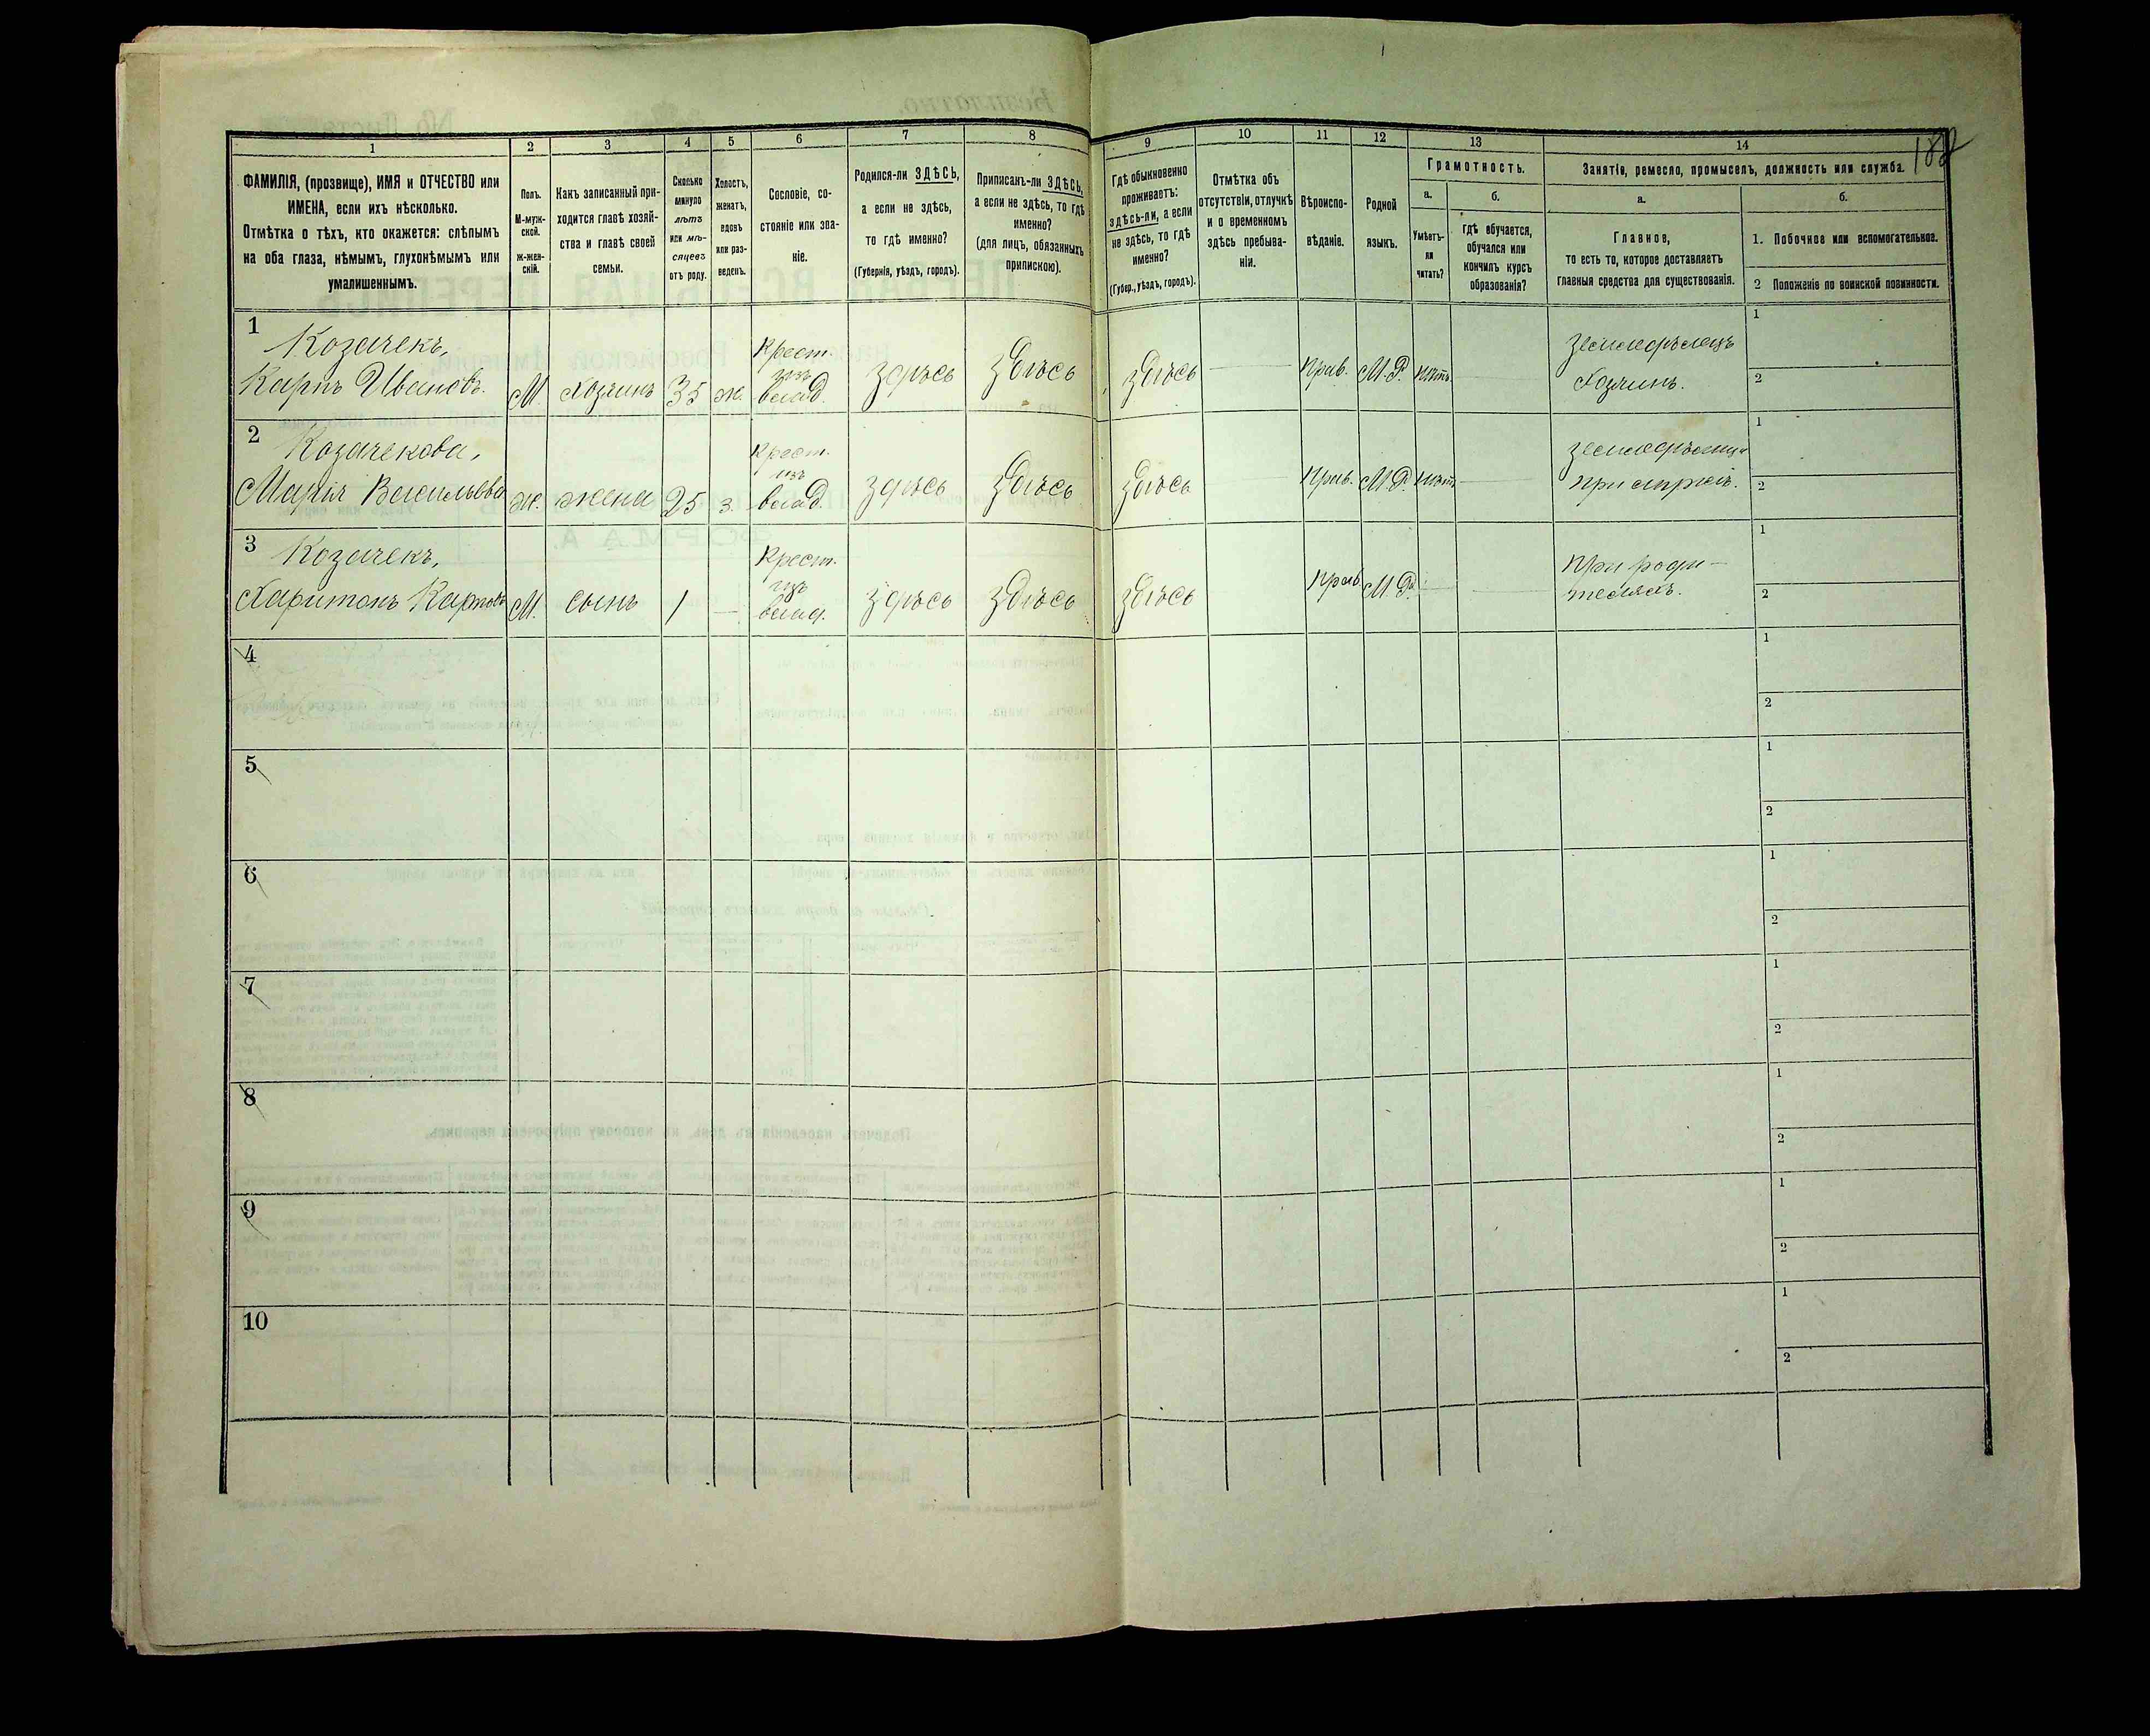 188
1 2 3 4 5 6 7 8 9 10 11 12 13 14
ФАМИЛІЯ, (прозвище), ИМЯ и ОТЧЕСТВО или
ИМЕНА, если ихъ нѣсколько.
Отмѣтка о тѣхъ, кто окажется: слѣпымъ
на оба глаза, нѣмымъ, глухонѣмымъ или
умалишеннымъ.
Полъ.
М-муж-
ской.
ж-жен-
скій.
Какъ записанный при-
ходится главѣ хозяй-
ства и главѣ своей
семьи.
Сколько
минуло
лѣтъ
или мѣ-
сяцевъ
отъ роду.
Холостъ,
женатъ,
вдовъ
или раз-
веденъ.
Сословіе, со-
стояніе или зва-
ніе.
Родился-ли ЗДѢСЬ,
а если не здѣсь,
то гдѣ именно?
(Губернія, уѣздъ, городъ).
Приписанъ-ли ЗДѢСЬ,
а если не здѣсь, то гдѣ
именно?
(для лицъ, обязанныхъ
припискою).
Гдѣ обыкновенно
проживаетъ:
здѣсь-ли, а если
не здѣсь, то гдѣ
именно?
(Губер., уѣздъ, городъ).
Отмѣтка объ
отсутствіи, отлучкѣ
и о временномъ
здѣсь пребыва-
ніи.
Вѣроиспо-
вѣданіе.
Родной
языкъ.
Грамотность.
а.
Умѣетъ-
ли
читать?
б.
гдѣ обучается,
обучался или
кончилъ курсъ
образованія?
Занятіе, ремесло, промыселъ, должность или служба.
а.
Главное,
то есть то, которое доставляетъ
главныя средства для существованія.
б.
1. Побочное или вспомогательное.
2 Положеніе по воинской повинности.
1
Козачекъ,
Карпъ Ивановъ.
М.
Хозяинъ
35
ж.
Крест.
изъ
влад.
здѣсь
здѣсь
здѣсь
Прав.
М.Р.
нѣтъ
земледѣлецъ
Хозяинъ.
1
2
2
Козачекова,
Марія Васильева
ж.
жена
25
з.
Крест.
изъ
влад.
здѣсь
здѣсь
здѣсь
Прав.
М.Р.
нѣтъ
земледѣлица
при мужѣ.
1
2
3
Козачекъ,
Харитонъ Карповъ
М.
сынъ
1
Крест.
изъ
влад.
здѣсь
здѣсь
здѣсь
Прав
М.Р.
При роди-
теляхъ.
1
2
4
1
2
5
1
2
6
1
2
7
1
2
8
1
2
9
1
2
10
1
2